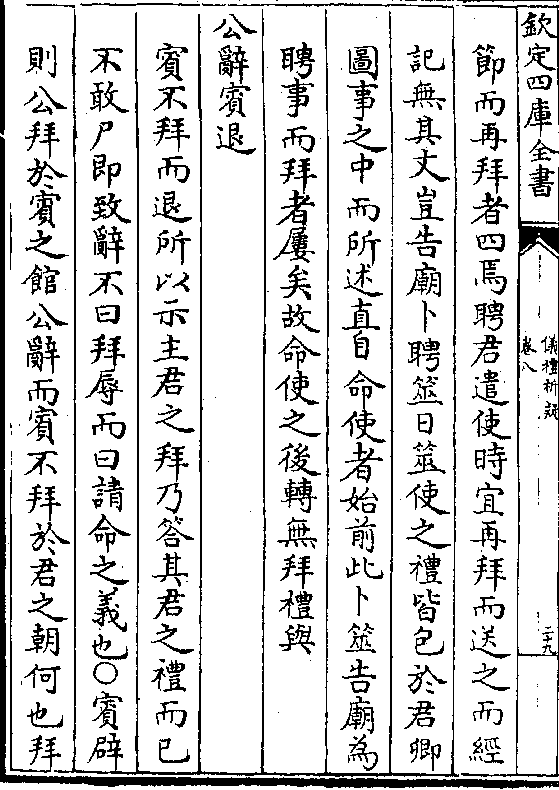 欽定四庫全書
儀禮析疑
卷八
二十九
節而再拜者四焉聘君遣使時宜再拜而送之而經
記無其文豈告廟卜聘筮日筮使之禮皆包於君卿
圖事之中而所述直自命使者始前此卜筮告廟為
聘事而拜者屢矣故命使之後轉無拜禮與
公辭賓退
賓不拜而退所以示主君之拜乃答其君之禮而已
不敢尸即致辭不曰拜辱而曰請命之義也○賓辟
則公拜於賓之館公辭而賓不拜於君之朝何也拜